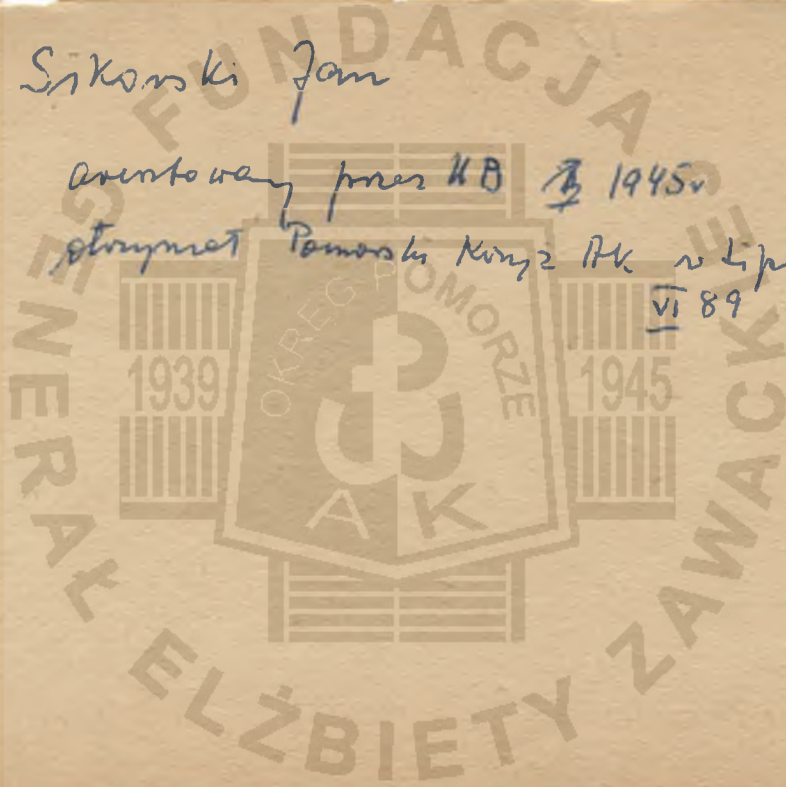 Sikorski Jan
aresztowany przez UB 1945r
otrzymał Pomorski Krzyż AK w Lip
VI 89
FUNDACJA GENERAŁ ELŻBIETY ZAWACKIEJ
OKRĘG POMORZE
1939
1945
AK